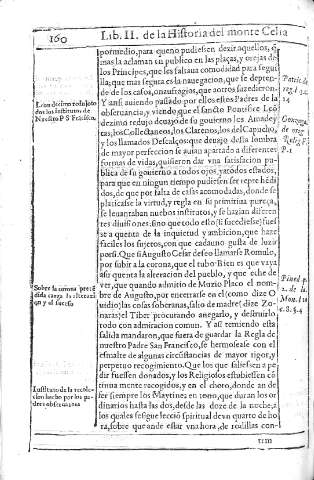 160
Lib. II. de la Historia del monte Celia
pormedio, para queno pudiessen dezir aquellos, q̃
mas la aclaman en publico en las plaças, y orejas de
los Principes, que les faltaua comodidad para segui
lla; que mas segura es la nauegacion, que se deprẽ-
de de los casos, o naufragios, que a otros sucedieron.
Y ansi auiendo passado por ellos estos Padres de la
obseruancia, y viendo que el sancto Pontifice Leõ
decimo redujo deuajo de su gouierno los Amadey
tas, los Collectaneos, los Clarenos, los del Capucho,
y los llamados Descalços, que deuajo desta sombra
de mayor perfeccion se auian apartado a diferentes
formas de vidas, quisieron dar vna satisfacion pu
blica de su gouierno a todos ojos, y a todos estados,
para que en ningun tiempo pudiessen ser reprehẽdi
dos, de que por falta de casas acomodadas, donde se
platicasse la virtud, y regla en su primitiua pureça,
se leuantaban nuebos institutos, y se hazian diferen
tes diuisiones: sino que todo esto (si sucediesse) fues
se a quenta de la inquietud y ambicion, que hace
faciles los sujetos, con que cada uno gusta de luzir
poesi. Que si Augusto Cesar deseo llamarse Romulo,
por subir a la cumbre, que el tubo: Bien es que vaya
asi quenta la alteracion del pueblo, y que eche de
ver, que quando admitio de Muzio Placo el nom-
bre de Augusto, por meterse en el (como dize O
uidio; las cosas soberanas, salio de madre (dize Zo
naras) el Tiber procurando anegarlo, y destruirlo
todo con admiracion comun. Y asi temiendo esta
salida mandaron, que fuera de guardar la Regla de
nuestro Padre San Francisco, se hermosease con el
esmalte de algunas circunstancias de mayor rigor, y
perpetuo recogimiento. Que los que saliessen a pe
dir fuessen donados, y los Religiosos estubiessen cõ
tinua mente recogidos, y en el choro, donde an de
ser siempre los Maytines en tono, que duran los or
dinarios hasta las dos, desde las doze de la noche; a
los quales se sigue leccio spiritual de vn quarto de ho
ra, sobre que ande estar vna hora, de rodillas con-
tem
Leon decimo redujo to
dos los institutos de
Nuestro P. S. Frãcisco.
Sobre la corona
y el sucesso
Instituto de la recole-
cion hecho por los pa-
dres obseruantes
Gonzaga
de orig.
Relig. F.
P. 1
Pined. p.
2. de la
Mon. l. 10
c. 8. §. 4